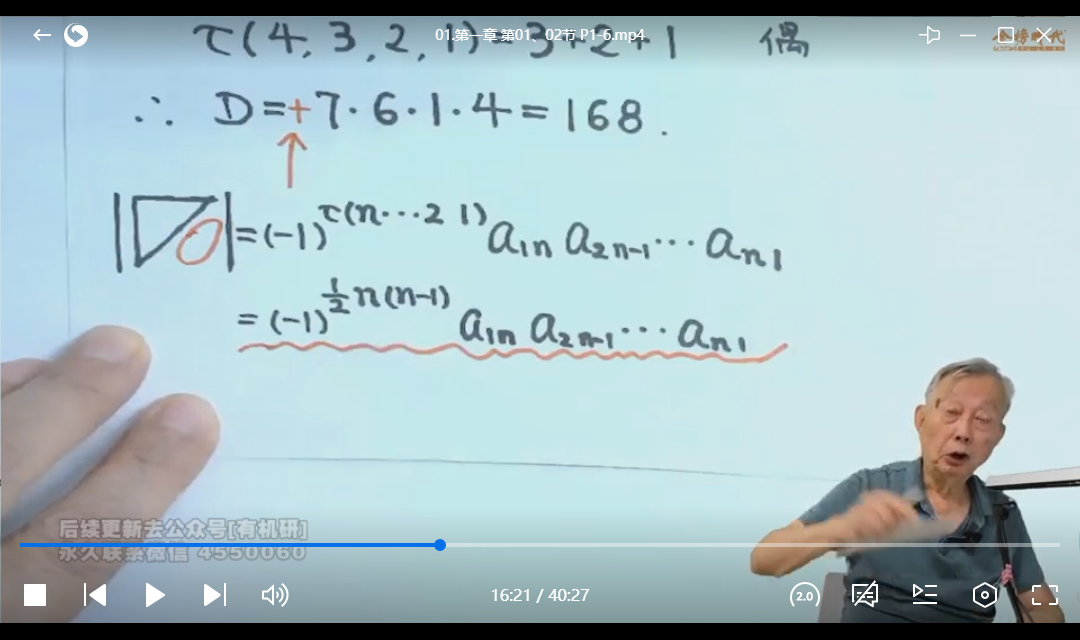 01.第一章 第01、02节 P1-6.mp4
τ(4,3,2,1)=3+2+1 偶
∴ D=+7·6·1·4=168.
=(-1)^τ(n···2 1) a₁ₙ a₂ₙ₋₁ ··· aₙ₁
=(-1)^½n(n-1) a₁ₙ a₂ₙ₋₁ ··· aₙ₁
后续更新去公众号[有机研]
永久联系微信 4550060
16:21 / 40:27
2.0